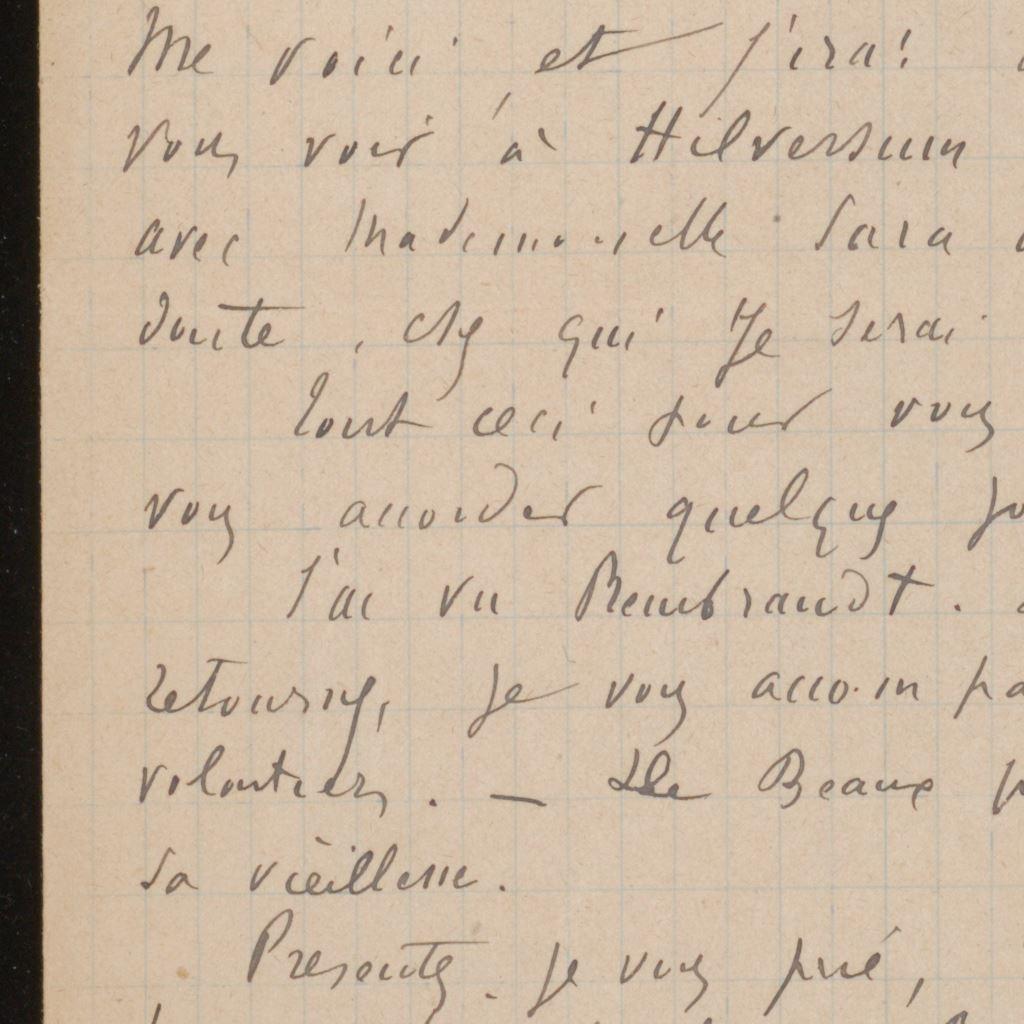 Me voici et j'irai
vous voir à Hilversum
avec Mademoiselle Sara
doute, chez qui je serai
Tout ceci pour vous
vous accorder quelques
J'ai vu Rembrandt.
retournez, je vous accompa
volontiers. — Beaux
sa vieillesse.
Presentez-je vous prié,